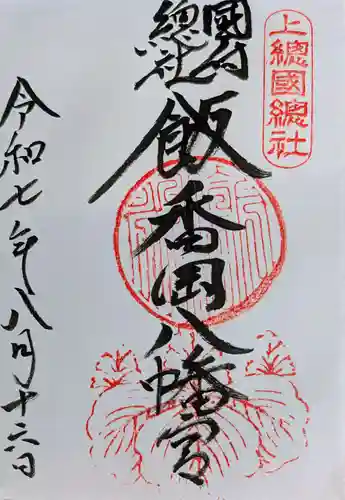 上總國總社
國府
總社
飯香岡八幡宮
令和七年八月十六日